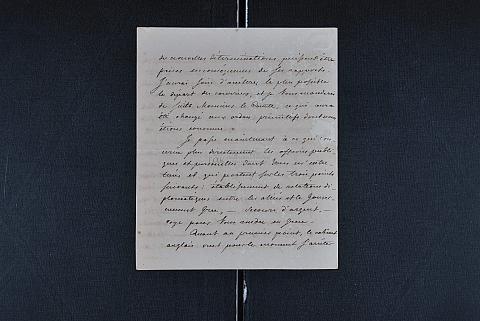 de nouvelles déterminations, puissent être
prises en conséquence de ses rapports.
J'aurai soin d'arrêter, le plus possible
le départ des courriers, et je vous manderai
de suite, Monsieur le Comte, ce qui aura
été changé aux ordres primitifs dont nous
étions convenus.
Je passe maintenant à ce qui con-
cerne plus directement les affaires publi-
ques et personnelles dont vous m'entre-
tenez et qui portent sur les trois points
suivants: établissement de relations di-
plomatiques entre les alliés et le Gouver-
nement Grec, — secours d'argent, —
pour vous rendre en Grèce.
Quant au premier point, le cabinet
anglais, veut pour le moment s'arrêter